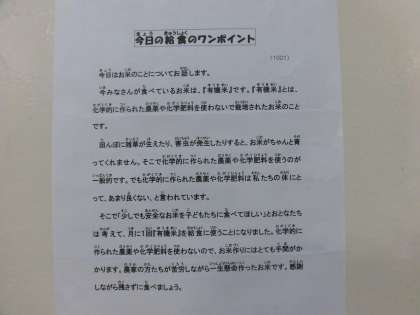 今日の給食のワンポイント
(1001)
今日はお米のことについてお話します。
今みなさんが食べているお米は、『有機米』です。『有機米』とは、
化学的に作られた農薬や化学肥料を使わないで栽培されたお米のこと
です。
田んぼに雑草が生えたり、害虫が発生したりすると、お米がちゃんと育
ってくれません。そこで化学的に作られた農薬や化学肥料を使うのが
一般的です。でも化学的に作られた農薬や化学肥料は私たちの体にと
って、あまり良くない、と言われています。
そこで「少しでも安全なお米を子どもたちに食べてほしい」とおとなたち
は考えて、月に1回『有機米』を給食に使うことになりました。化学的に
作られた農薬や化学肥料を使わないので、お米作りにはとても手間がか
かります。農家の方たちが苦労しながら一生懸命作ったお米です。感謝
しながら残さずに食べましょう。